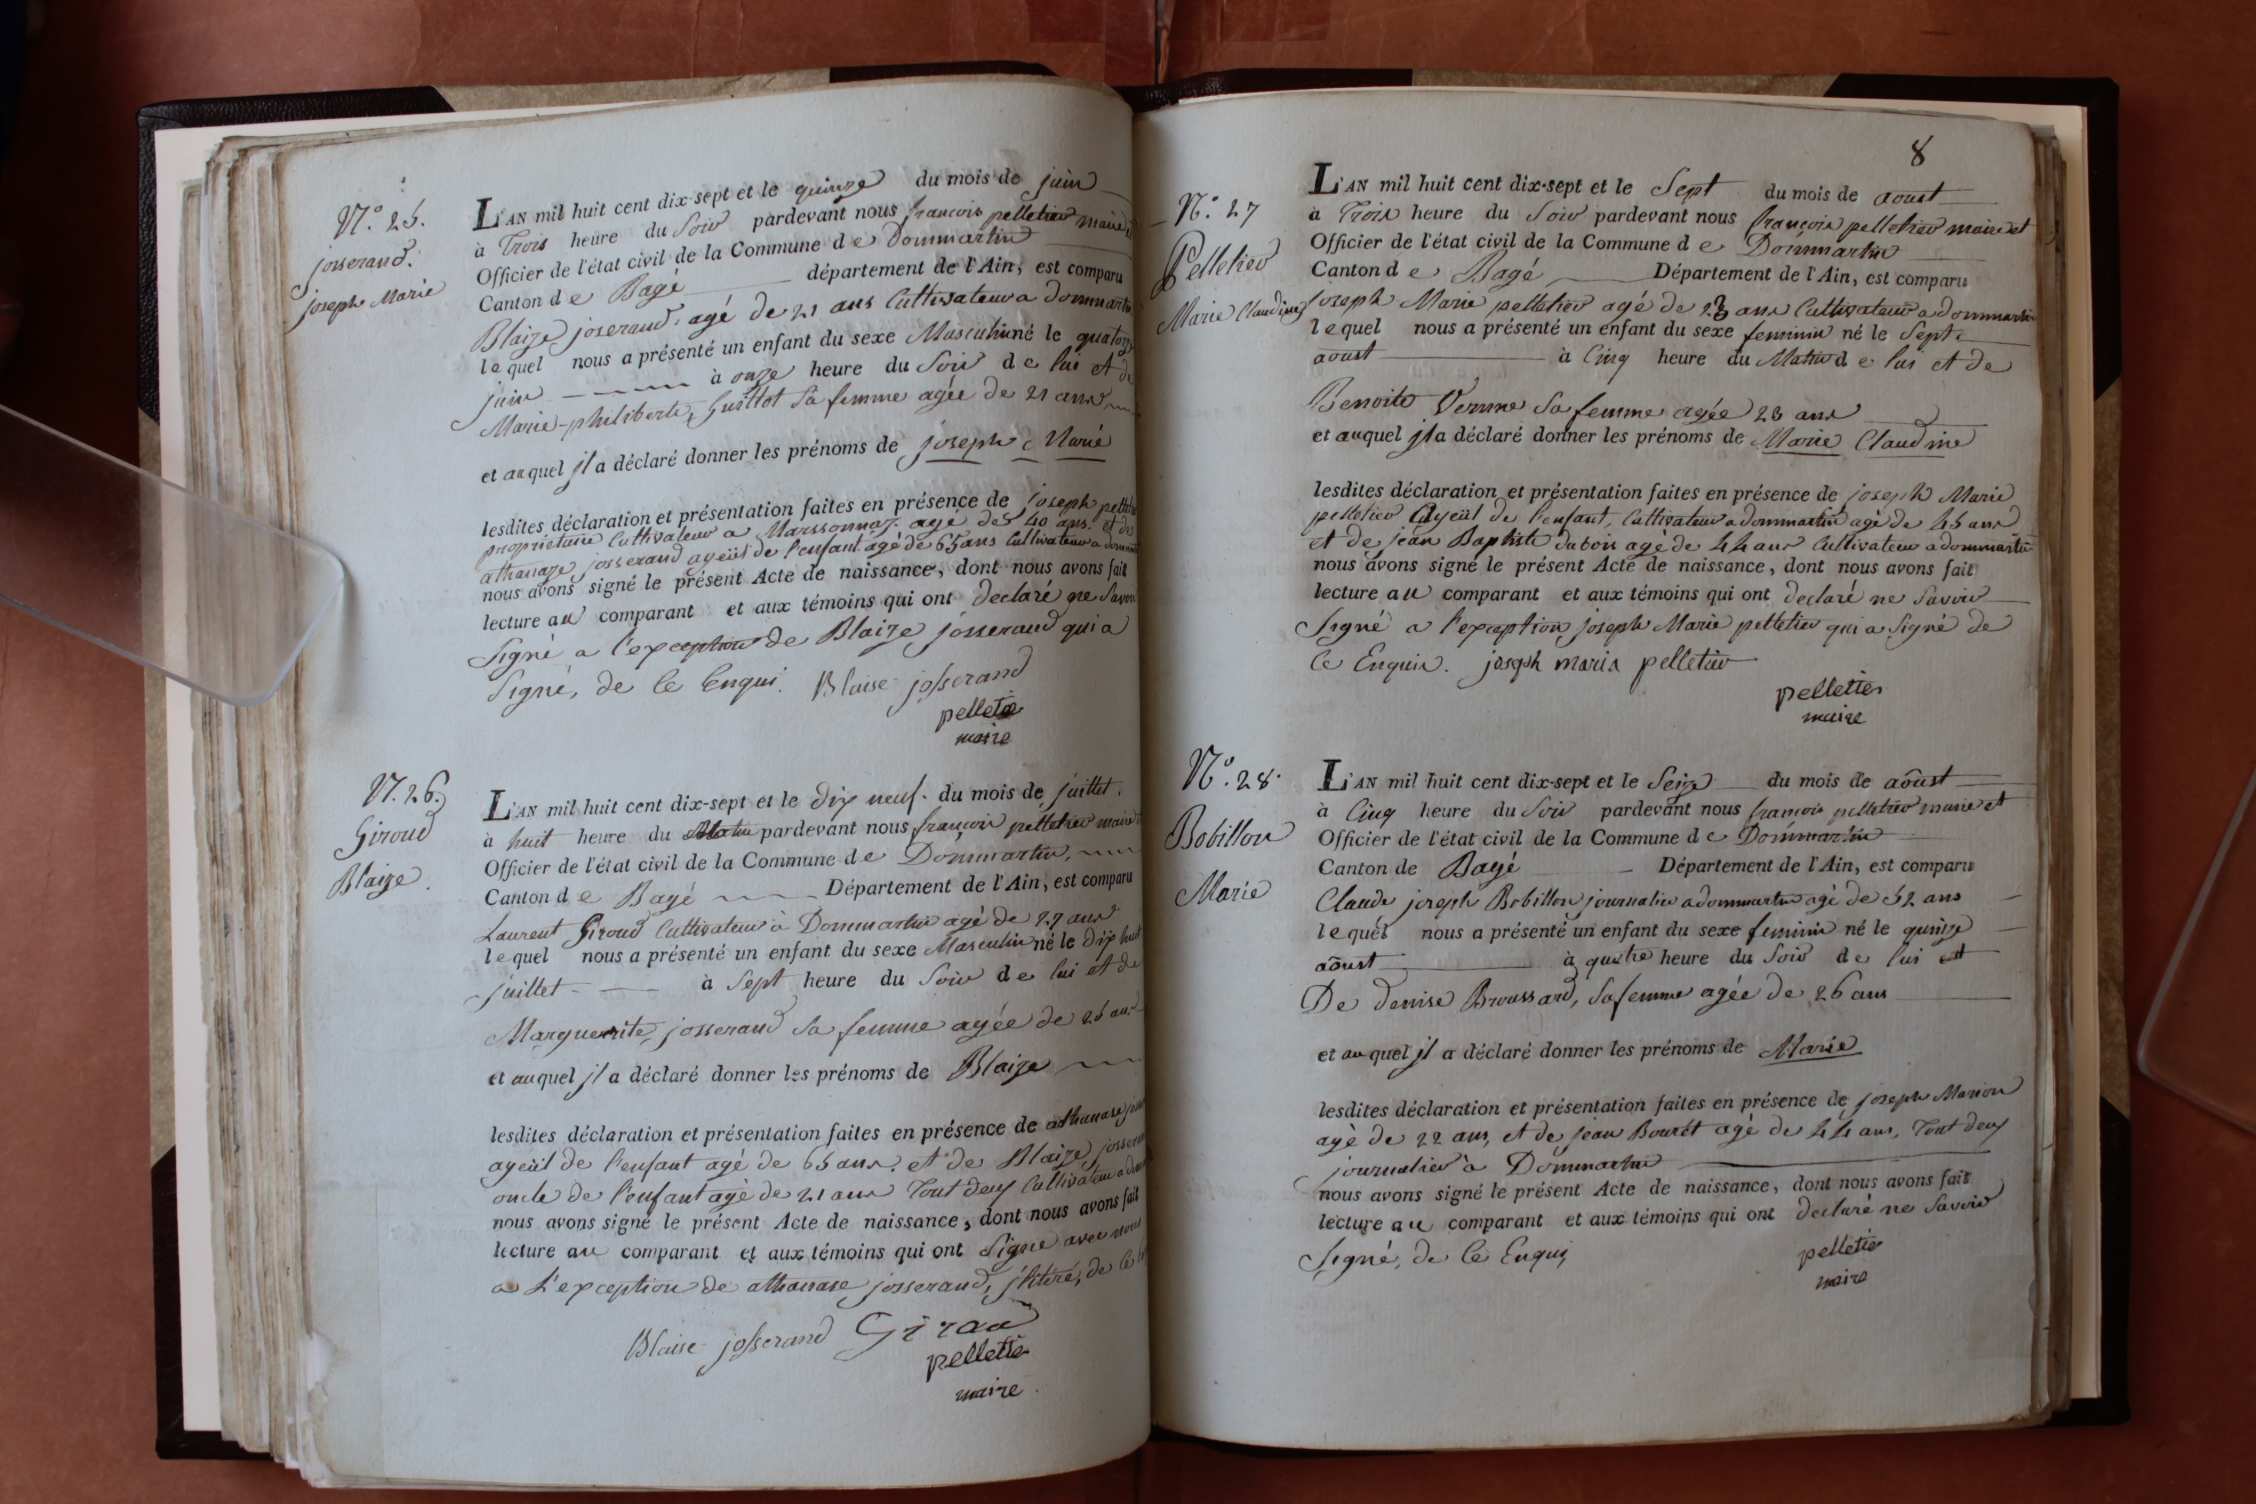 N.° 25.
josserand.
joseph Marie
L'AN mil huit cent dix-sept et le quinze du mois de juin
à Trois heure du Soir pardevant nous françois pelletier maire
Officier de l'état civil de la Commune de Dommartin
Canton de Bagé département de l'Ain, est comparu
Blaize joserand. agé de 21 ans Cultivateur a dommartin
lequel nous a présenté un enfant du sexe Masculin né le quatorze
juin à onze heure du Soir de lui et de
Marie-philiberte, Guillot Sa femme agée de 21 ans
et auquel jl a déclaré donner les prénoms de joseph Marie
lesdites déclaration et présentation faites en présence de joseph
proprietaire Cultivateur a Marssonnaz. agé de 40 ans. et de
athanaze josserand ayeül de l'enfant agé de 65 ans Cultivateur a
nous avons signé le présent Acte de naissance, dont nous avons fait
lecture au comparant et aux témoins qui ont declaré ne Savoir
Signé a l'exception de Blaize josserand qui a
Signé, de ce Enqui. Blaise josserand
pelletie
maire
N. 26.
Giroud
Blaize.
L'AN mil huit cent dix-sept et le dix neuf. du mois de juillet.
à huit heure du Matin pardevant nous françois pelletier maire
Officier de l'état civil de la Commune de Dommartin,
Canton de Bagé Département de l'Ain, est comparu
Laurent Giroud Cultivateur à Dommartin agé de 27 ans
lequel nous a présenté un enfant du sexe Masculin né le dix huit
juillet à Sept heure du Soir de lui et de
Marguerite, josserand Sa femme agée de 25 ans
et auquel jl a déclaré donner les prénoms de Blaize
lesdites déclaration et présentation faites en présence de athanase
ayeül de l'enfant agé de 65 ans. et de Blaize
oncle de l'enfant agé de 21 ans Tout deux Cultivateur a
nous avons signé le présent Acte de naissance, dont nous avons fait
lecture au comparant et aux témoins qui ont Signé avec nous
a L'exception de athanase josserand, jlitéré, de ce
Blaise josserand Girau
pelletie
maire.
8
N.° 27
Pelletier
Marie Claudine
L'AN mil huit cent dix-sept et le Sept du mois de aoust
à Trois heure du Soir pardevant nous françois pelletier maire et
Officier de l'état civil de la Commune de Dommartin
Canton de Bagé Département de l'Ain, est comparu
joseph Marie pelletier agé de 23 ans Cultivateur a dommartin
lequel nous a présenté un enfant du sexe feminin né le Sept
aoust à Cinq heure du Matin de lui et de
Benoite Verune Sa femme agée 23 ans
et auquel jl a déclaré donner les prénoms de Marie Claudine
lesdites déclaration et présentation faites en présence de joseph Marie
pelletier Ayeül de l'enfant, Cultivateur a dommartin agé de 45 ans
et de jean Baptiste dubois agé de 44 ans Cultivateur a dommartin
nous avons signé le présent Acte de naissance, dont nous avons fait
lecture au comparant et aux témoins qui ont declaré ne Savoir
Signé a l'exception joseph Marie pelletier qui a Signé de
Ce Enquis. joseph maria pelletier
pelletier
maire
N.° 28.
Bobillon
Marie
L'AN mil huit cent dix-sept et le Seize du mois de aôust
à Cinq heure du Soir pardevant nous françois pelletier maire et
Officier de l'état civil de la Commune de Dommartin
Canton de Bagé Département de l'Ain, est comparu
Claude joseph Bobillon journalier a dommartin agé de 32 ans
lequel nous a présenté un enfant du sexe feminin né le quinze
aôust à quatre heure du Soir de lui et
De denise Broussard, Sa femme agée de 26 ans
et auquel jl a déclaré donner les prénoms de Marie
lesdites déclaration et présentation faites en présence de joseph Marion
agé de 22 ans, et de jean Bourét agé de 44 ans, Tout deux
journalier à Dommartin
nous avons signé le présent Acte de naissance, dont nous avons fait
lecture au comparant et aux témoins qui ont declaré ne Savoir
Signé, de Ce Enqui,
pelletie
maire